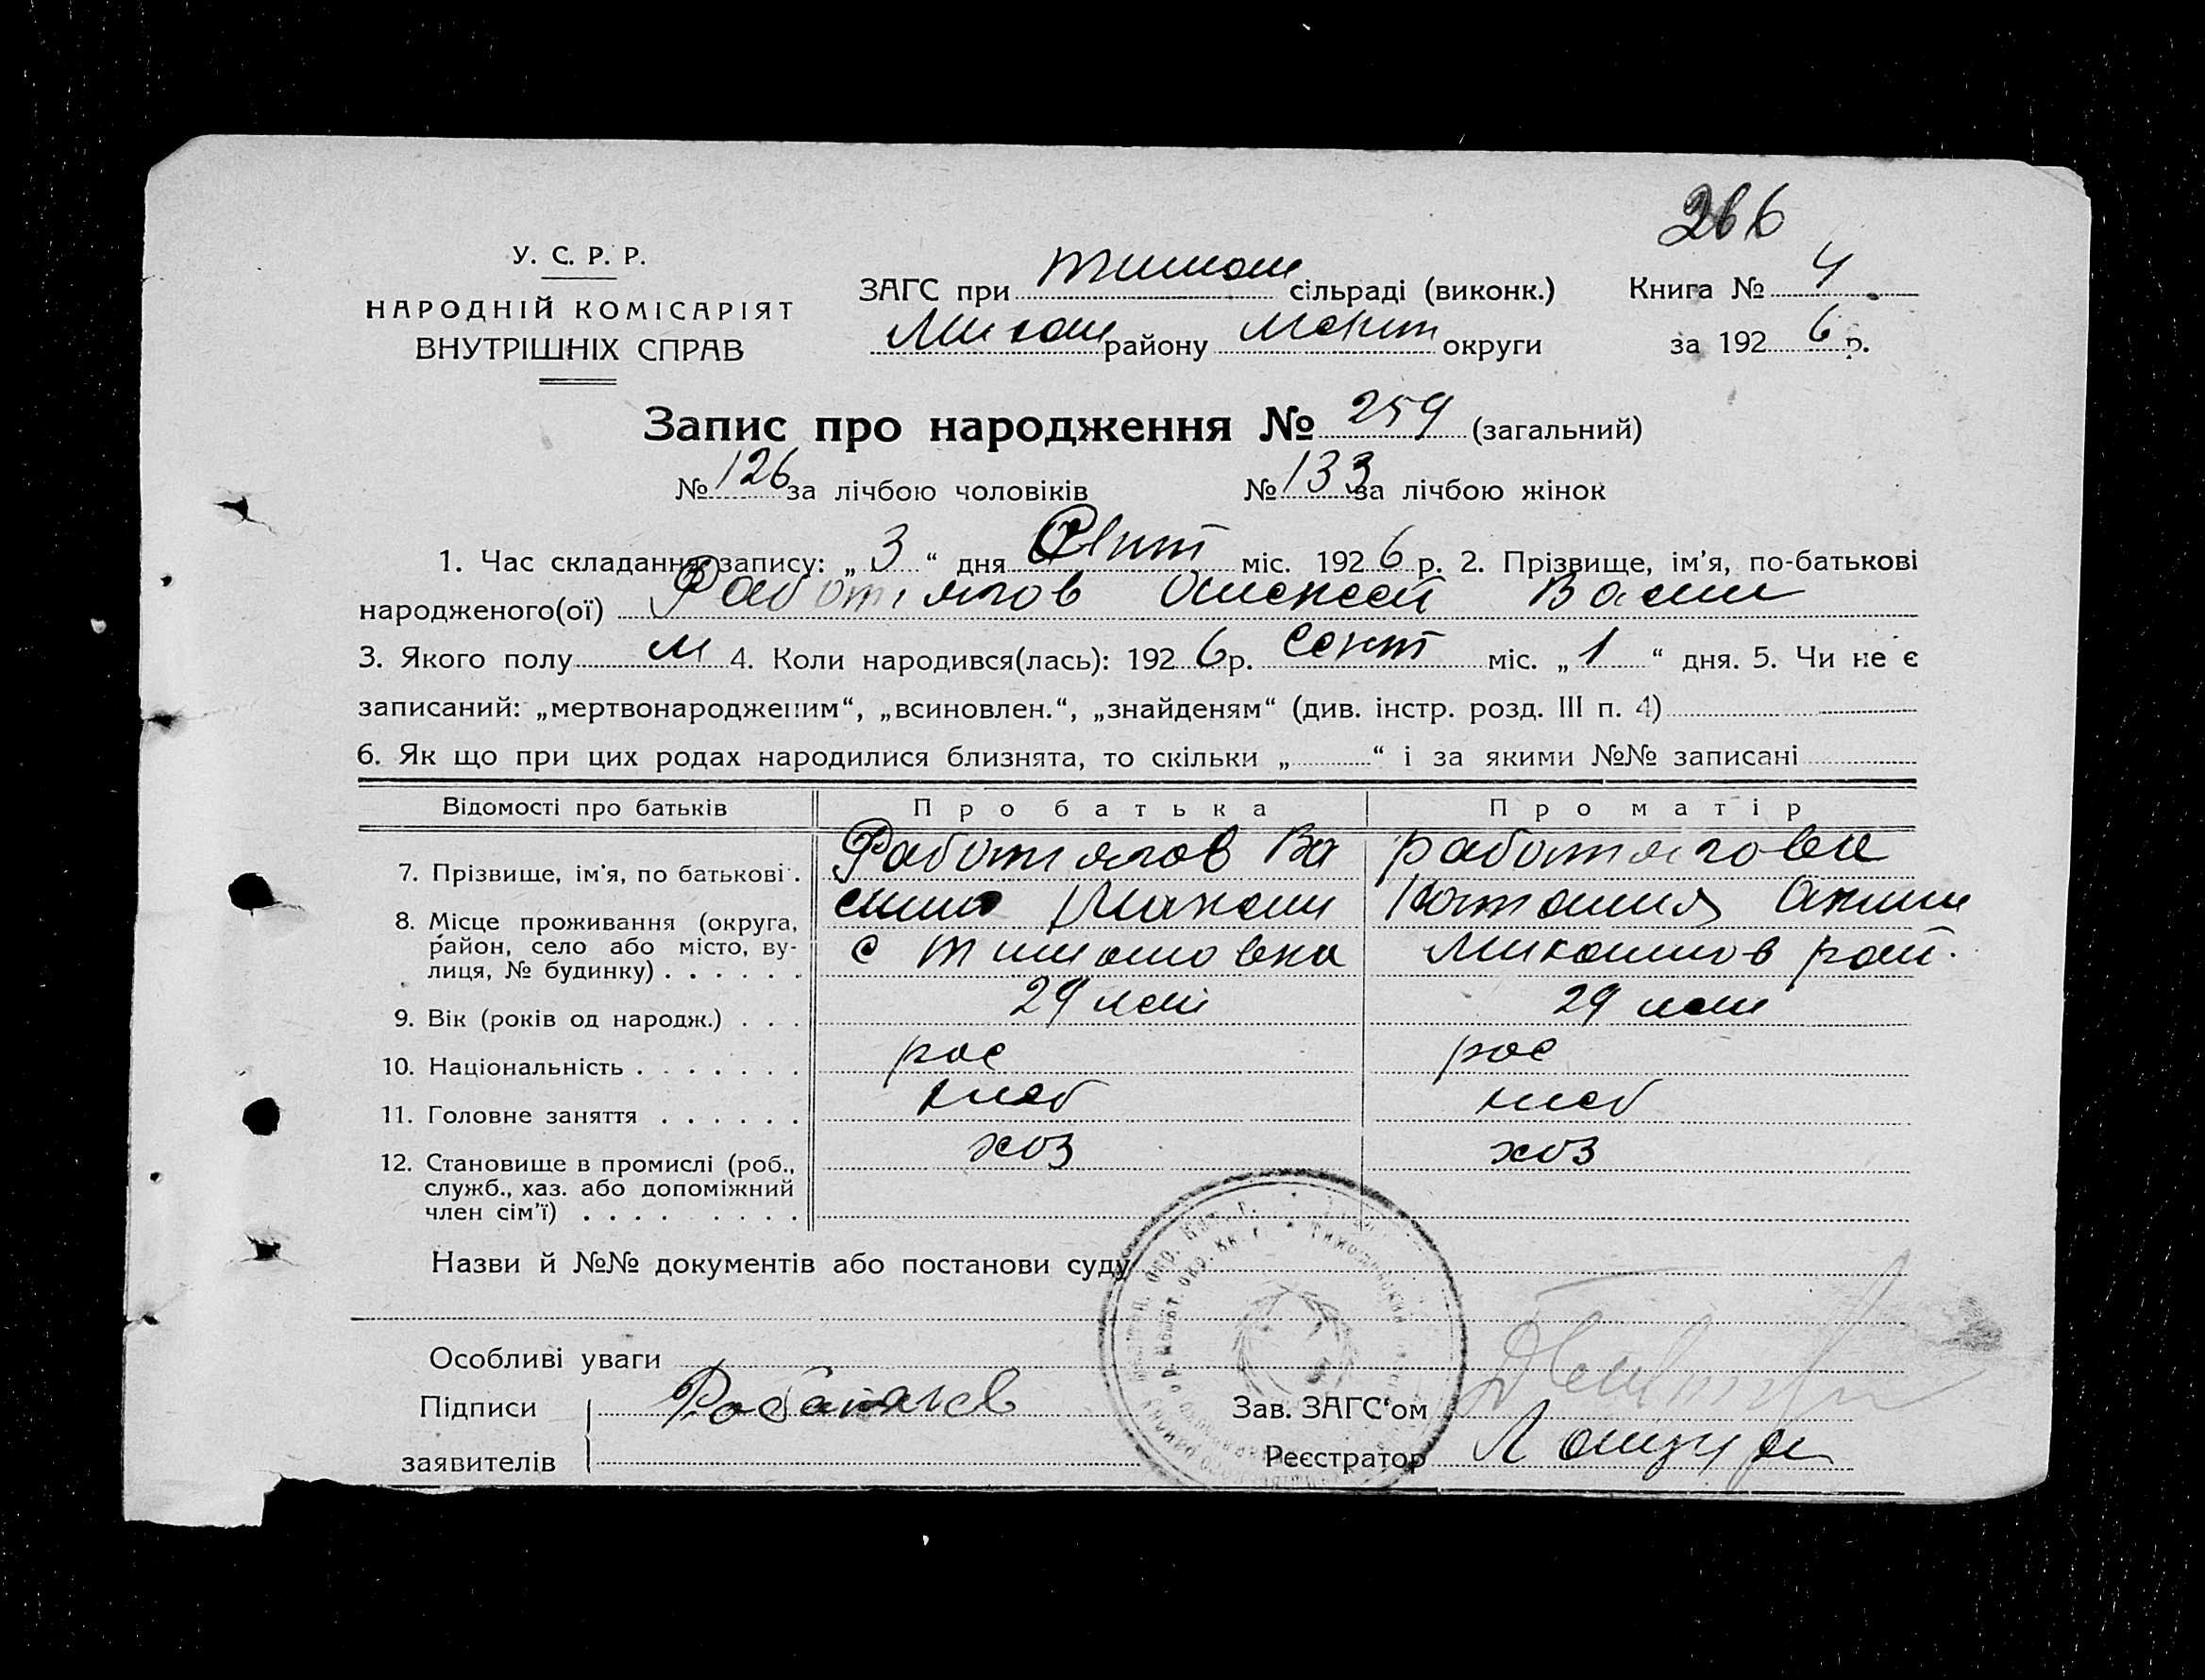 266
У. С. Р. Р.
НАРОДНІЙ КОМІСАРІЯТ
ВНУТРІШНІХ СПРАВ
ЗАГС при Тимош сільраді (виконк.)
району Меліт округи
Книга № 4
за 192 6 р.
Запис про народження № 259 (загальний)
№ 126 за лічбою чоловіків № 133 за лічбою жінок
1. Час складання запису: „ 3 “ дня міс. 192 6 р. 2. Прізвище, ім’я, по-батькові
народженого(ої) Работягов Алексей Васил
3. Якого полу м 4. Коли народився(лась): 192 6 р. Сент міс. „ 1 “ дня. 5. Чи не є
записаний: „мертвонародженим“, „всиновлен.“, „знайденям“ (див. інстр. розд. III п. 4)
6. Як що при цих родах народилися близнята, то скільки „ “ і за якими №№ записані
Відомості про батьків Про батька Про матір
7. Прізвище, ім’я, по батькові . Работягов Ва Работягова
силий Наталия
8. Місце проживання (округа,
район, село або місто, ву-
лиця, № будинку) . . . . . . с Тимошовка рай.
9. Вік (років од народж.) . . . 29 лет 29 лет
10. Національність . . . . . . . рос рос
11. Головне заняття . . . . . . хлеб хлеб
12. Становище в промислі (роб.,
служб., хаз. або допоміжний
член сім’ї) . . . . . . . . . хоз хоз
Назви й №№ документів або постанови суду
Особливі уваги
Підписи Работягов Зав. ЗАГС‘ом
заявителів Реєстратор